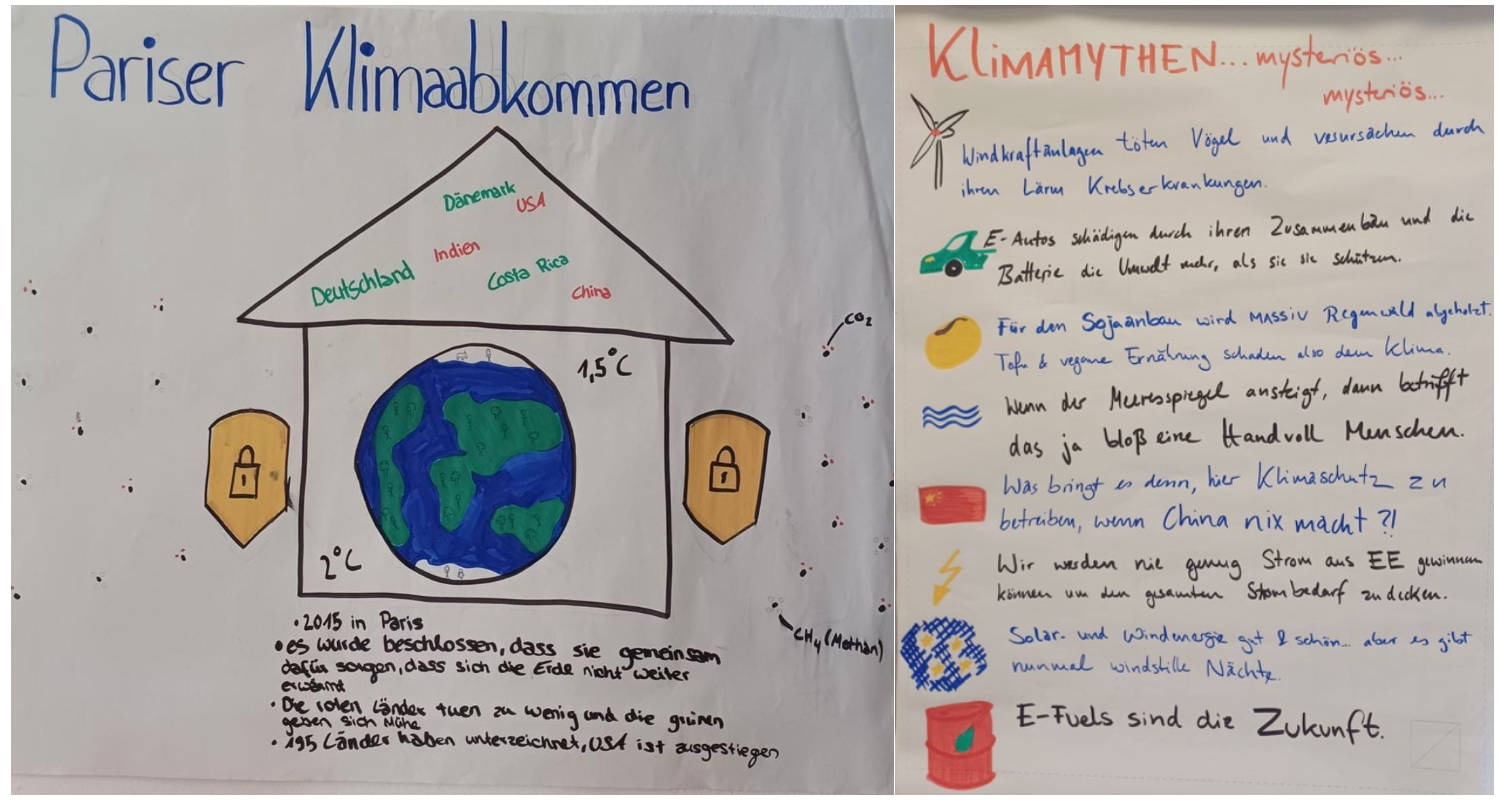 Pariser Klimaabkommen
Dänemark
USA
Indien
Deutschland
Costa Rica
China
1,5°C
2°C
CO₂
CH₄ (Methan)
• 2015 in Paris
• es wurde beschlossen, dass sie gemeinsam
dafür sorgen, dass sich die Erde nicht weiter
erwärmt
• Die roten Länder tuen zu wenig und die grünen
geben sich Mühe
• 195 Länder haben unterzeichnet, USA ist ausgestiegen
KLIMAMYTHEN... mysteriös...
mysteriös...
Windkraftanlagen töten Vögel und verursachen durch
ihren Lärm Krebserkrankungen.
E-Autos schädigen durch ihren Zusammenbau und die
Batterie die Umwelt mehr, als sie sie schützen.
Für den Sojaanbau wird MASSIV Regenwald abgeholzt.
Tofu & vegane Ernährung schaden also dem Klima.
Wenn der Meeresspiegel ansteigt, dann betrifft
das ja bloß eine Handvoll Menschen.
Was bringt es denn, hier Klimaschutz zu
betreiben, wenn China nix macht?!
Wir werden nie genug Strom aus EE gewinnen
können um den gesamten Strombedarf zu decken.
Solar- und Windenergie gut & schön... aber es gibt
nunmal windstille Nächte.
E-Fuels sind die Zukunft.